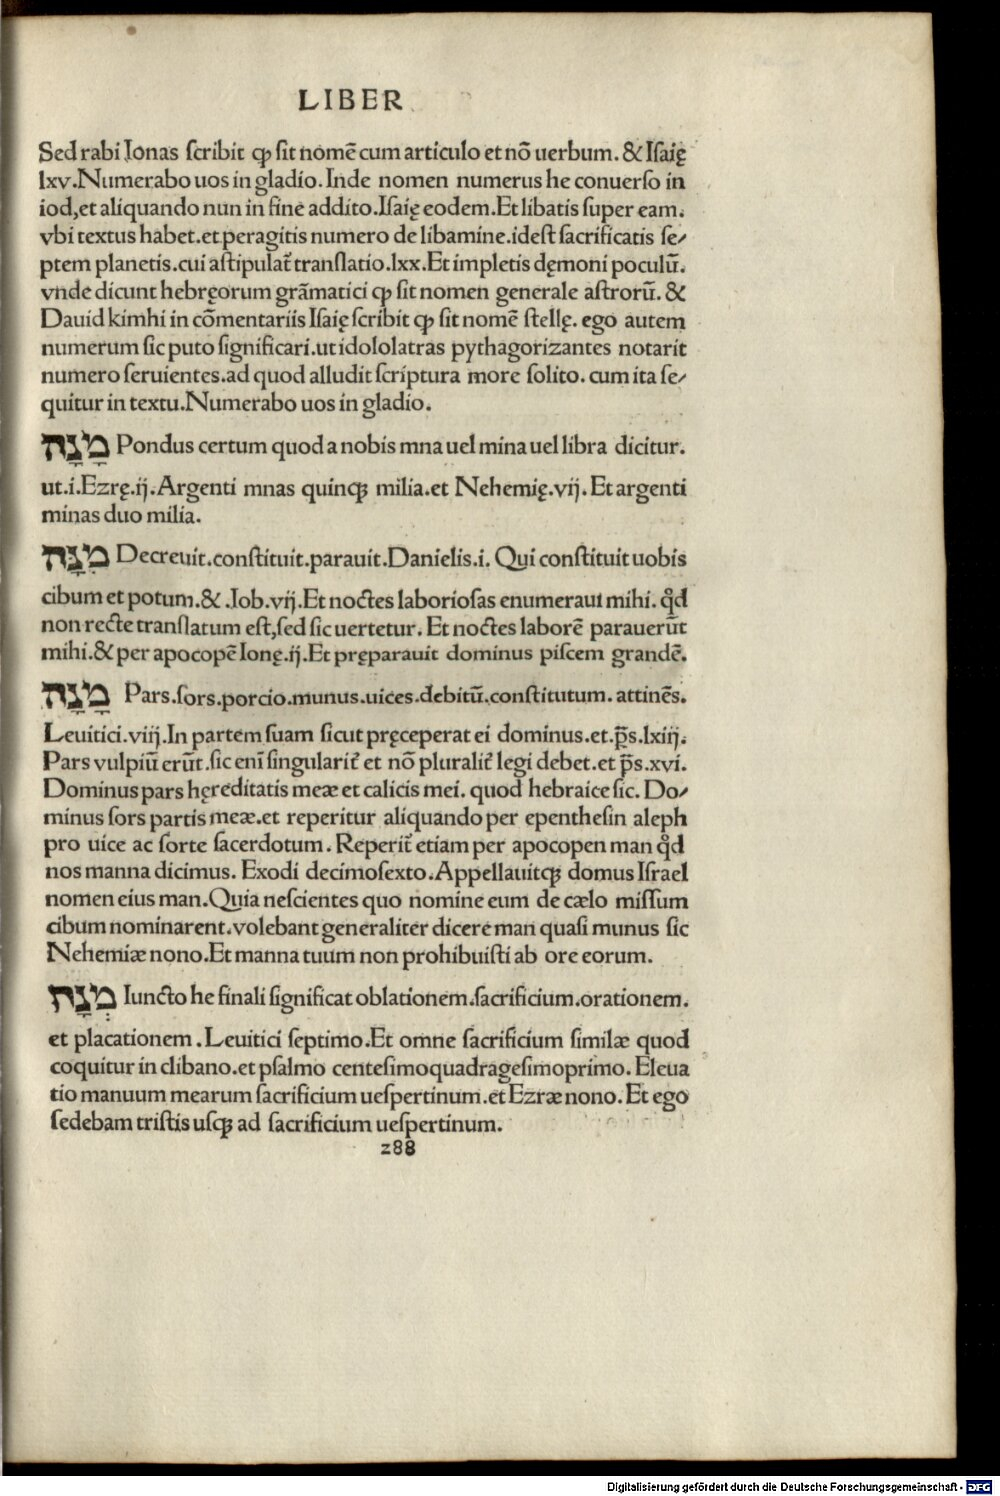 LIBER
Sed rabi Ionas scribit ꝙ sit nomē cum articulo et nō uerbum. & Isaię
lxv. Numerabo uos in gladio. Inde nomen numerus he conuerso in
iod, et aliquando nun in fine addito. Isaię eodem. Et libatis super eam.
vbi textus habet. et peragitis numero de libamine. idest sacrificatis se⸗
ptem planetis. cui astipulat̃ translatio. lxx. Et impletis dęmoni poculū.
vnde dicunt hebręorum grāmatici ꝙ sit nomen generale astrorū. &
Dauid kimhi in cōmentariis Isaię scribit ꝙ sit nomē stellę. ego autem
numerum sic puto significari. ut idololatras pythagorizantes notarit
numero seruientes. ad quod alludit scriptura more solito. cum ita se⸗
quitur in textu. Numerabo uos in gladio.
מָנָה Pondus certum quod a nobis mna uel mina uel libra dicitur.
ut. i. Ezrę. ij. Argenti mnas quinqꝫ milia. et Nehemię. vij. Et argenti
minas duo milia.
מִנָּה Decreuit. constituit. parauit. Danielis. i. Qui constituit uobis
cibum et potum. & . Iob. vij. Et noctes laboriosas enumeraui mihi. qď
non recte translatum est, sed sic uertetur. Et noctes laborē parauerūt
mihi. & per apocopē Ionę. ij. Et pręparauit dominus piscem grandē.
מָנָה Pars. sors. porcio. munus. uices. debitū. constitutum. attinēs.
Leuitici. viij. In partem suam sicut pręceperat ei dominus. et. p̄s. lxiij.
Pars vulpiū erūt. sic enī singularit̃ et nō pluralit̃ legi debet. et p̄s. xvi.
Dominus pars hęreditatis meæ et calicis mei. quod hebraice sic. Do⸗
minus sors partis meæ. et reperitur aliquando per epenthesin aleph
pro uice ac sorte sacerdotum. Reperit̃ etiam per apocopen man qď
nos manna dicimus. Exodi decimosexto. Appellauitqꝫ domus Israel
nomen eius man. Quia nescientes quo nomine eum de cælo missum
cibum nominarent. volebant generaliter dicere man quasi munus sic
Nehemiæ nono. Et manna tuum non prohibuisti ab ore eorum.
מְנָח Iuncto he finali significat oblationem. sacrificium. orationem.
et placationem. Leuitici septimo. Et omne sacrificium similæ quod
coquitur in clibano. et psalmo centesimoquadragesimoprimo. Eleua
tio manuum mearum sacrificium uespertinum. et Ezræ nono. Et ego
sedebam tristis usqꝫ ad sacrificium uespertinum.
288
Digitalisierung gefördert durch die Deutsche Forschungsgemeinschaft - DFG